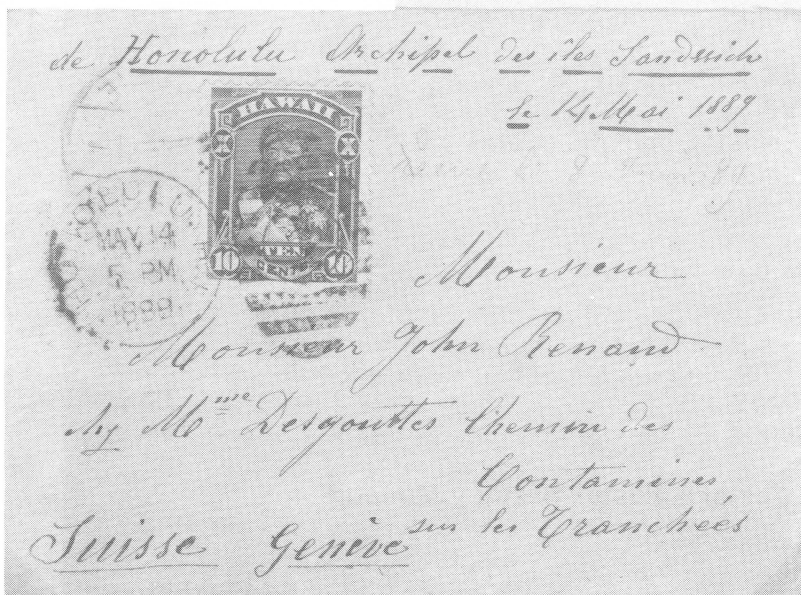 de Honolulu Archipel des iles Sandwich
le 14 Mai 1889
HAWAII
X X
TEN
10 CENTS 10
HONOLULU
MAY 14
5 PM
1889
Monsieur
Monsieur John Renaud
chz Mme Desgouttes Chemin des
Contamines
sur les Tranchées
Suisse Genève